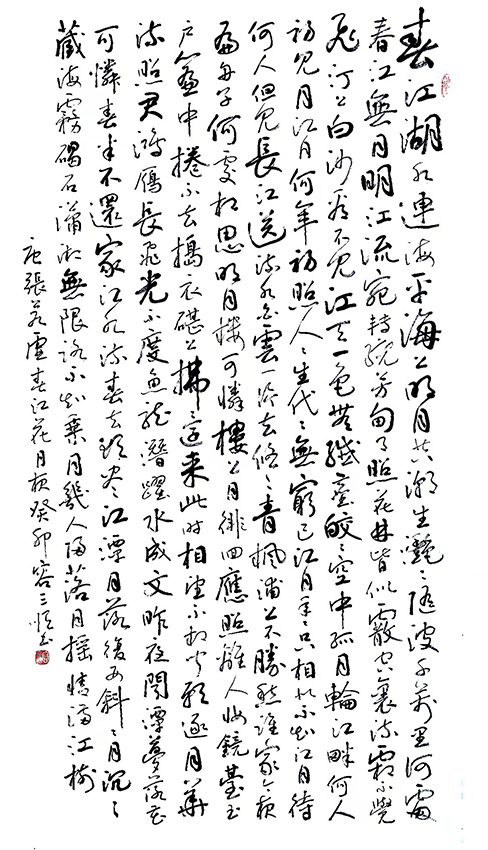 春江湖水連海平海上明月共潮生灩〻隨波千萬里何處
春江無月明江流宛轉繞芳甸月照花林皆似霰空裏流霜不覺
飛汀上白沙看不見江天一色無纖塵皎〻空中孤月輪江畔何人
初見月江月何年初照人〻生代〻無窮已江月年〻只相似不知江月待
何人但見長江送流水白雲一片去悠〻青楓浦上不勝愁誰家今夜
扁舟子何處相思明月樓可憐樓上月徘徊應照離人妝鏡臺玉
户簾中捲不去搗衣砧上拂〻還來此時相望不相聞願逐月華
流照君鴻雁長飛光不度魚龍潛躍水成文昨夜閑潭夢落花
可憐春半不還家江水流春去欲盡〻江潭月落復西斜〻月沉〻
藏海霧碣石瀟湘無限路不知乘月幾人歸落月搖情滿江樹
唐張若虛春江花月夜癸卯容三書